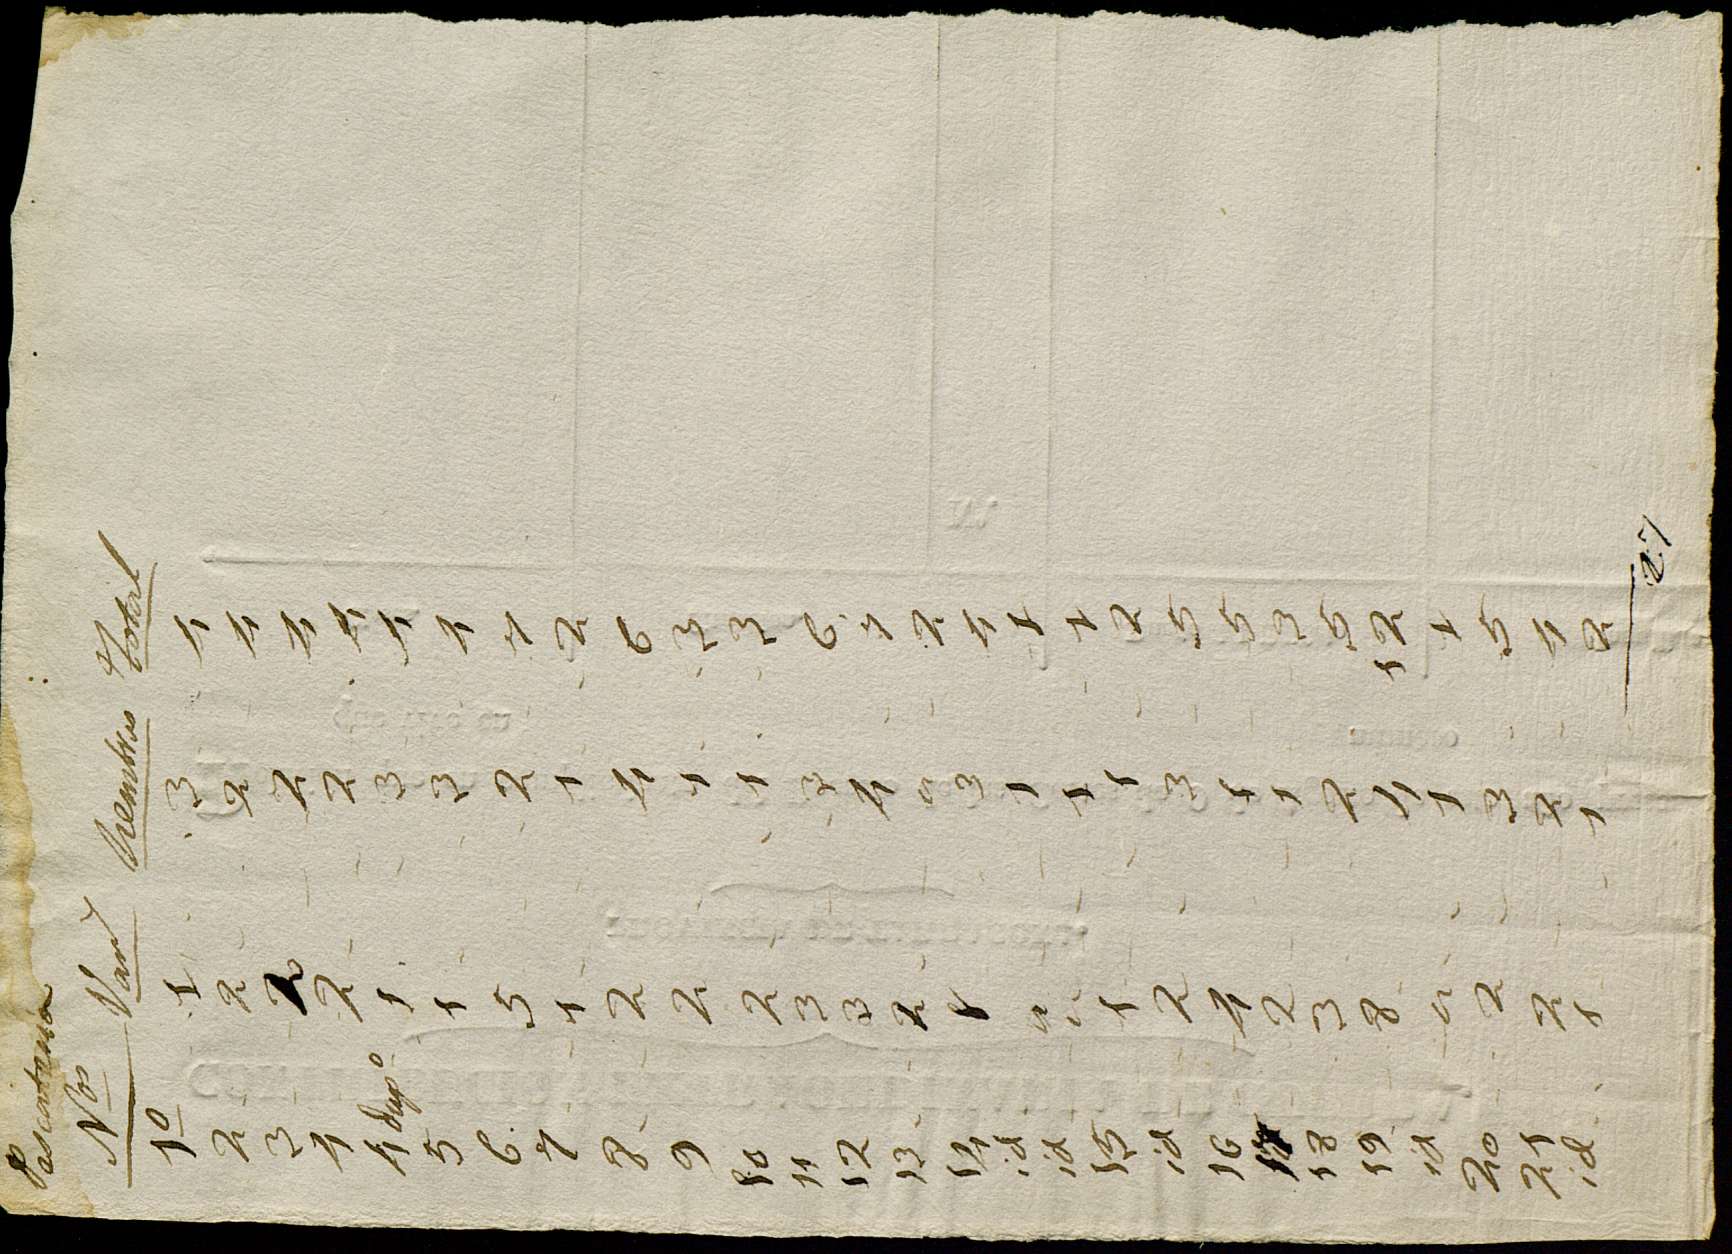 Nos Var Hembras Total
1º 1 3 4
2 2 2 4
3 2 2 4
4 2 2 4
4 dupº 1 3 4
5 1 3 4
6 5 2 7
7 1 1 2
8 2 4 6
9 2 1 3
10 2 1 3
11 3 3 6
12 3 4 7
13 2 „ 2
14 1 3 4
id „ 1 1
id „ 1 1
15 1 1 2
id 2 3 5
16 4 1 5
17 2 1 3
18 3 2 5
19 8 4 12
id „ 1 1
20 2 3 5
21 2 2 4
id 1 1 2
27